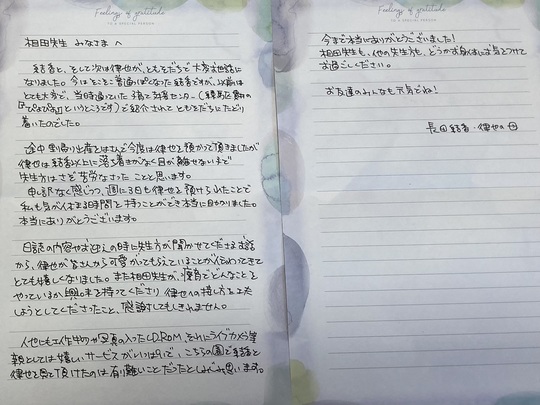 Feelings of gratitude
TO A SPECIAL PERSON
相田先生 みなさまへ
結香と、そして次は律也が、ともそだちで大変お世話に
なりました。今はそこそこ普通っぽくなった結香ですが、以前は
とても大変で、当時通っていた子育て支援センター(練馬区
『ぴよぴよ』というところです)で紹介されてともそだちにたどり
着いたのでした。
途中 里帰り出産をはさんで今度は律也を預かって頂きましたが
律也は結香以上に落ち着きがなく目が離せないので
先生方はさぞ苦労なさったことと思います。
申し訳なく感じつつ、週に3日も律也を預けられたことで
私も気が休まる時間を持つことができ本当に助かりました。
本当にありがとうございます。
日誌の内容やお迎えの時に先生方が聞かせてくださるお話
から、律也が皆さんから可愛がってもらえていることが伝わってきて
とても嬉しくなりました。また相田先生が、療育でどんなことを
やっているか興味を持ってくださり 律也への接し方を工夫
しようとしてくださったこと、感謝してもしきれません。
他にも工作や写真の入ったCD-ROM、それにライブカメラ等
親としては嬉しいサービスがいっぱいで、こちらの園で結香と
律也を見て頂けたのは有り難いことだったとしみじみ思います。
Feelings of gratitude
TO A SPECIAL PERSON
今まで本当にありがとうございました!
相田先生も、他の先生方も、どうかお身体にお気をつけて
お過ごしください。
お友達のみんなも元気でね!
長田結香・律也の母